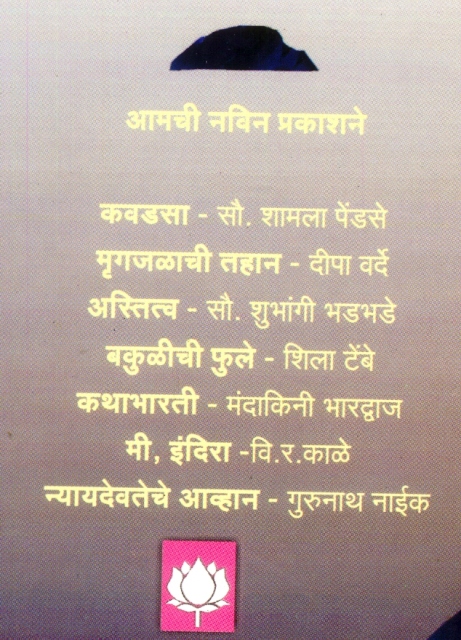 आमची नविन प्रकाशने
कवडसा - सौ. शामला पेंडसे
मृगजळाची तहान - दीपा वर्दे
अस्तित्व - सौ. शुभांगी भडभडे
बकुळीची फुले - शिला टेंबे
कथाभारती - मंदाकिनी भारद्वाज
मी, इंदिरा -वि.र.काळे
न्यायदेवतेचे आव्हान - गुरुनाथ नाईक